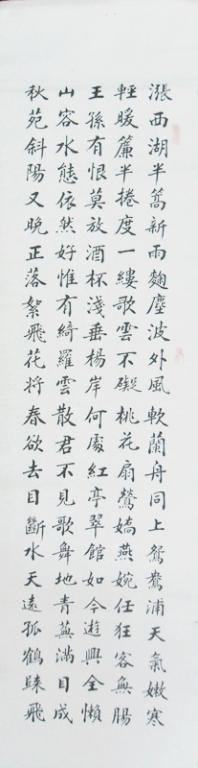 漲西湖半篙新雨麴塵波外風軟蘭舟同上鴛鴦浦天氣嫩寒
輕暖簾半捲度一縷歌雲不礙桃花扇鶯嬌燕婉任狂客無腸
王孫有恨莫放酒杯淺垂楊岸何處紅亭翠館如今遊興全懶
山容水態依然好惟有綺羅雲散君不見歌舞地青蕪滿目成
秋苑斜陽又晚正落絮飛花將春欲去目斷水天遠孤鶴睞飛